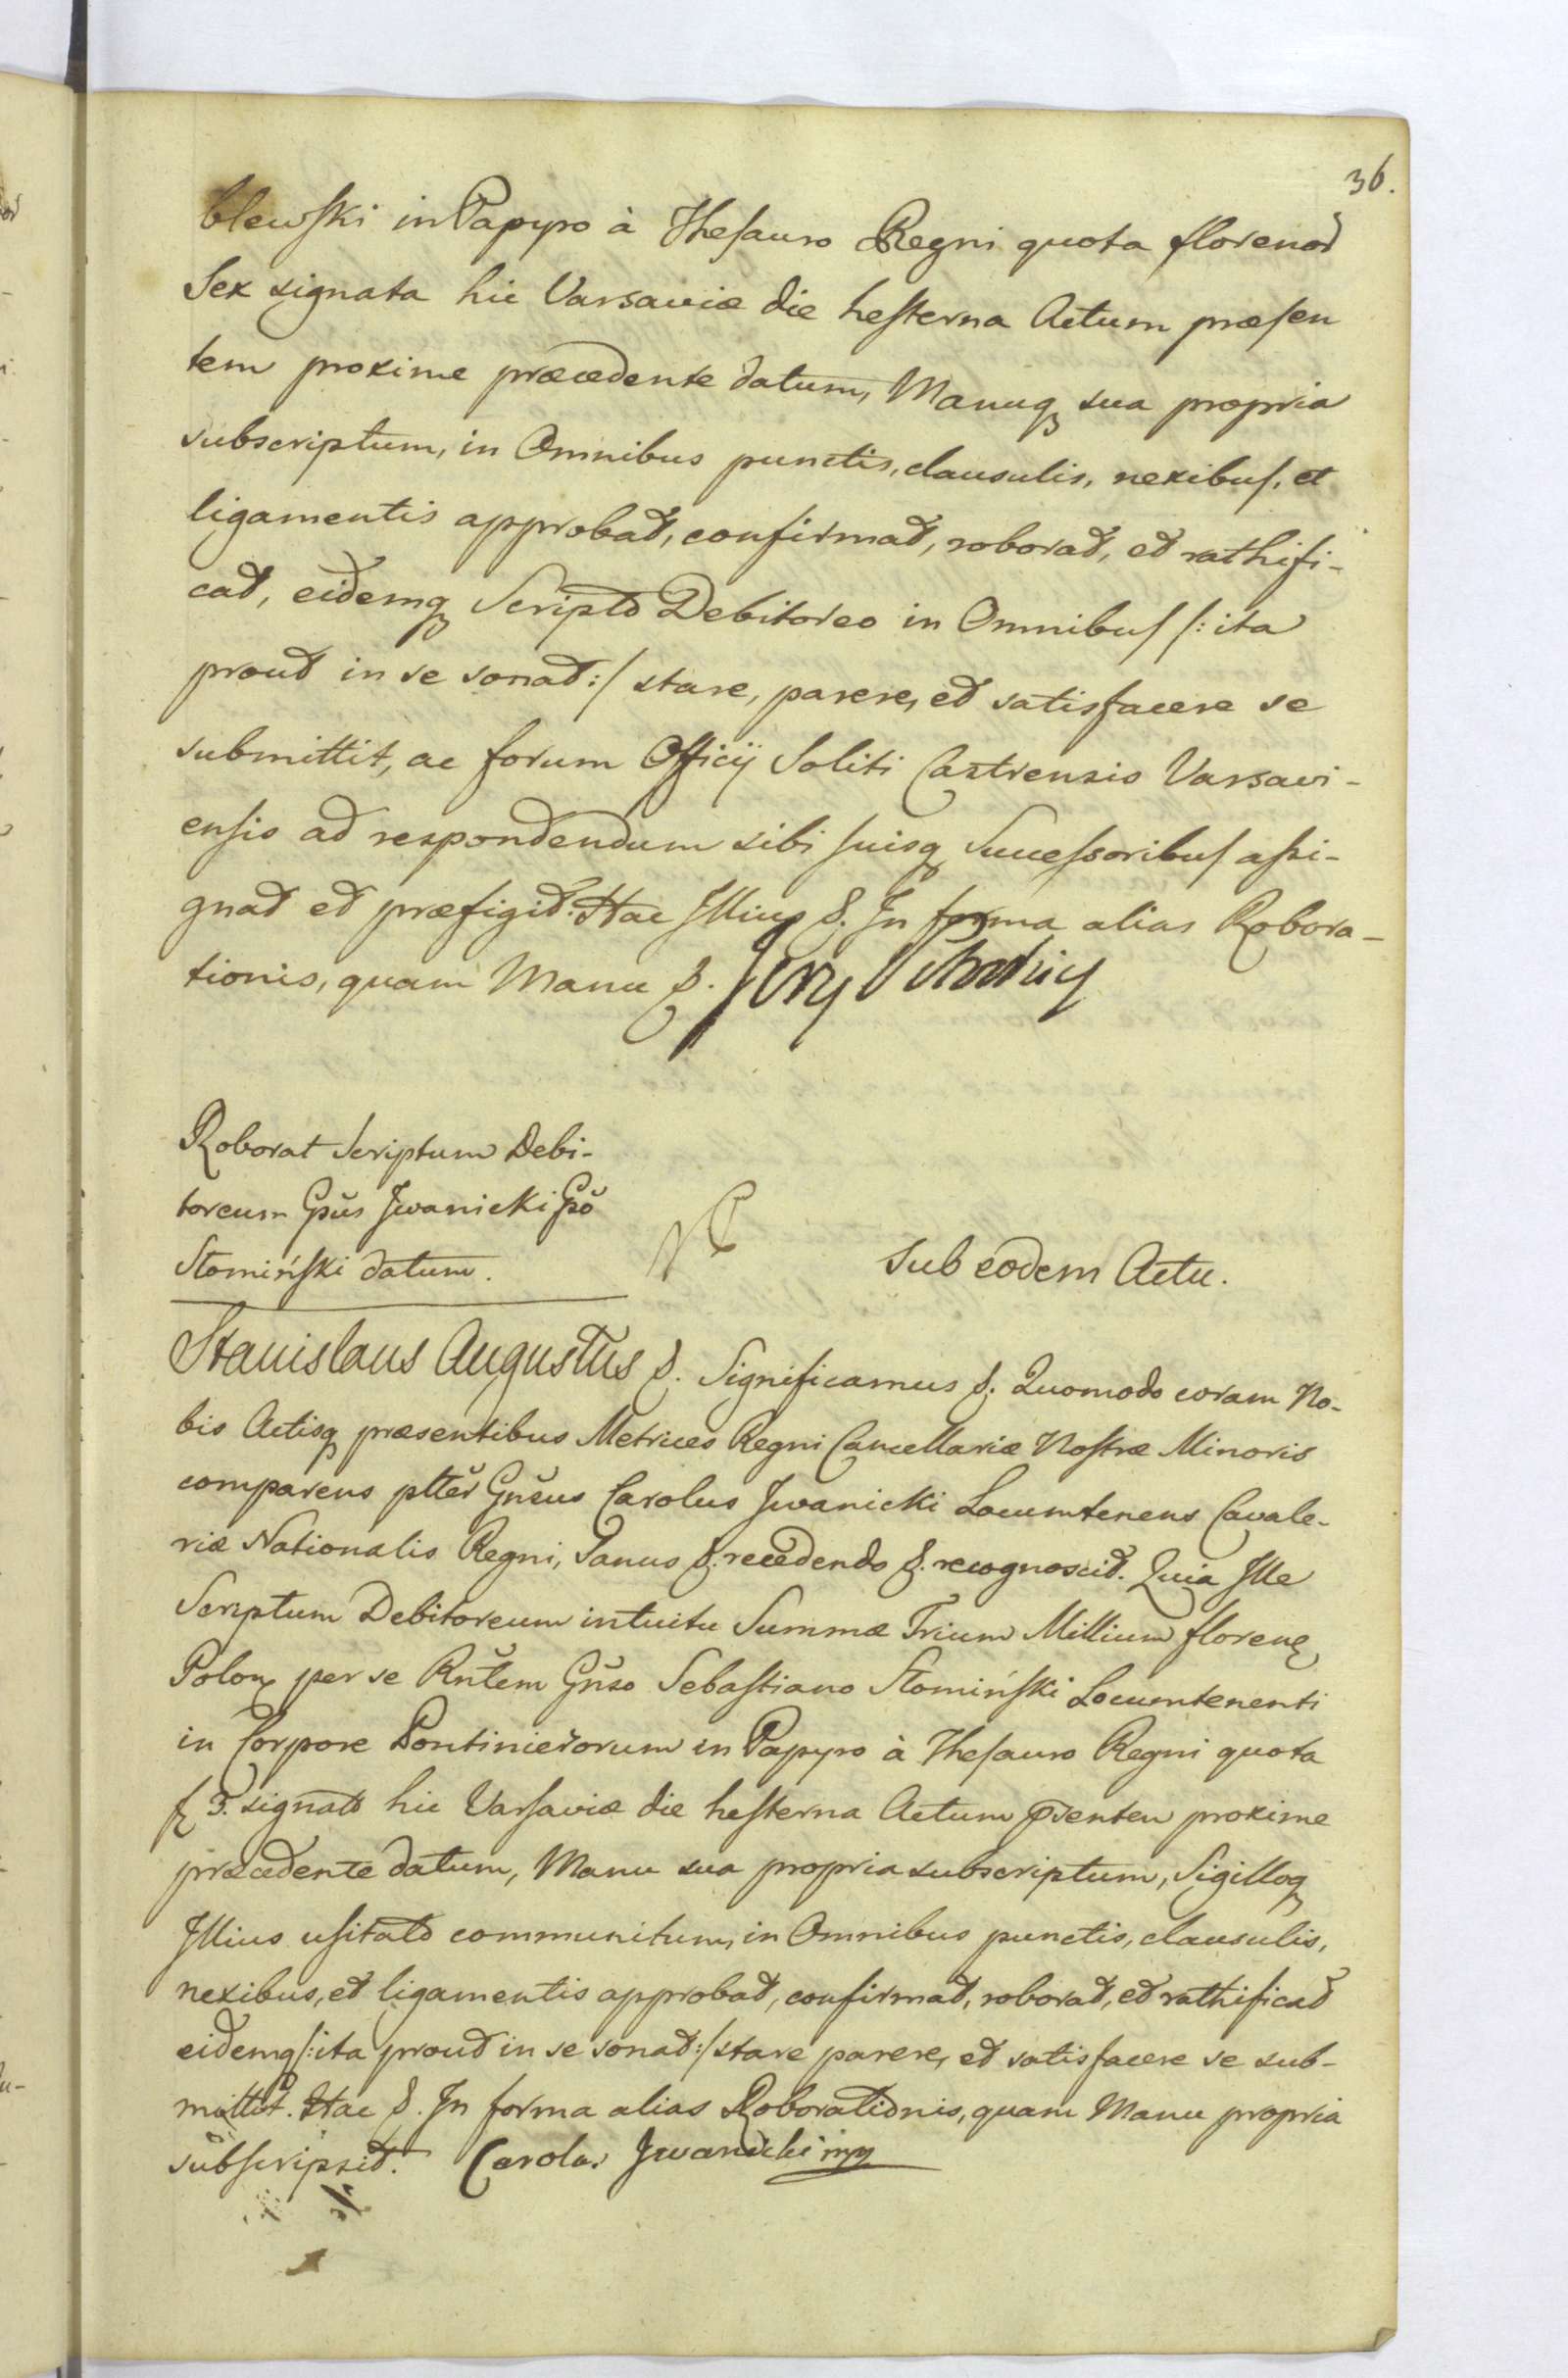 36.
blewski in Papyro à Thesauro Regni quota florenor
Sex signata hic Varsaviæ die hesterna Actum præsen
tem proxime præcedente datum, Manuq sua propria
subscriptum, in Omnibus punctis, clausulis, nexibus, et
ligamentis approbat, confirmat, roborat, et rathifi-
cat, eidemq Scripto Debitoreo in Omnibus /: ita
prout in se sonat :/ stare, parere, et satisfacere se
submittit, ac forum Officij Soliti Castrensis Varsavi-
ensis ad respondendum sibi suisq Successoribus assi-
gnat et præfigit. Hac Illius &. In forma alias Robora-
tionis, quam Manu &. Jerzy
Roborat Scriptum Debi-
toreum Gsus Jwanicki Gso
Słomiński datum.
Sub eodem Actu.
Stanislaus Augustus &. Significamus &. Quomodo coram No-
bis Actisq præsentibus Metrices Regni Cancellariæ Nostræ Minoris
comparens plter Gnsus Carolus Jwanicki Locumtenens Cavale-
riæ Nationalis Regni, Sanus &. recedendo &. recognoscit. Quia Ille
Scriptum Debitoreum intuitu Summæ Trium Millium floren
Polon per se Rntem Gnso Sebastiano Słomiński Locumtenenti
in Corpore Pontinierorum in Papyro à Thesauro Regni quota
f 3. signato hic Varsaviæ die hesterna Actum psentem proxime
præcedente datum, Manu sua propria subscriptum, Sigilloq
Illius usitato communitum, in Omnibus punctis, clausulis,
nexibus, et ligamentis approbat, confirmat, roborat, et rathificat
eidemq /: ita prout in se sonat :/ stare parere, et satisfacere se sub-
mittit. Hac &. In forma alias Roborationis, quam Manu propria
subscripsit. Carolus Jwanicki mp